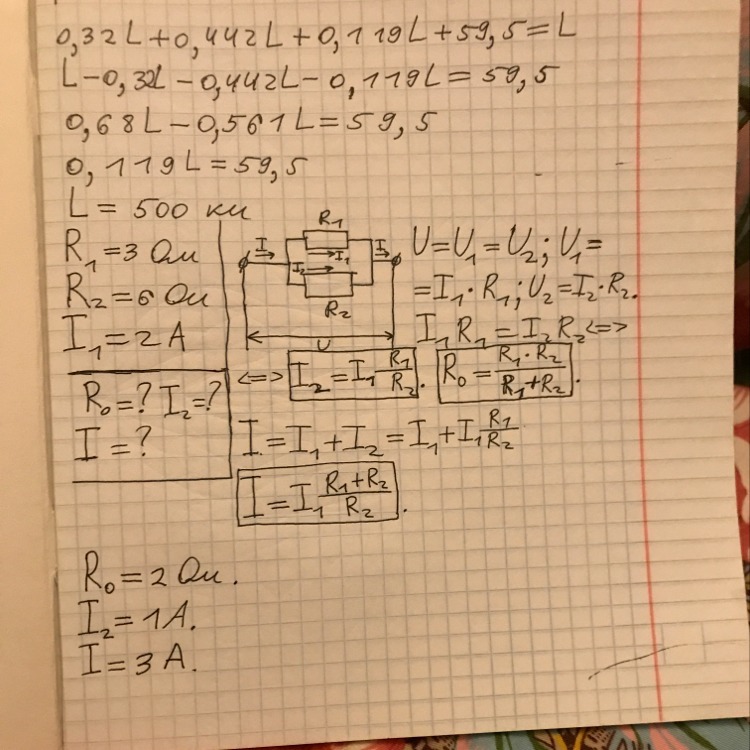 0,32L+0,442L+0,119L+59,5=L
L-0,32L-0,442L-0,119L=59,5
0,68L-0,561L=59,5
0,119L=59,5
L=500 км
R₁=3 Ом
R₂=6 Ом
I₁=2 А
R₀=? I₂=?
I=?
R₁
I I₁ I
I₂
R₂
U
U=U₁=U₂; U₁=
=I₁·R₁; U₂=I₂·R₂.
I₁R₁=I₂R₂<=>
<=> I₂=I₁ R₁/R₂. R₀=R₁·R₂/(R₁+R₂).
I=I₁+I₂=I₁+I₁ R₁/R₂
I=I₁ (R₁+R₂)/R₂.
R₀=2 Ом.
I₂=1А.
I=3 А.